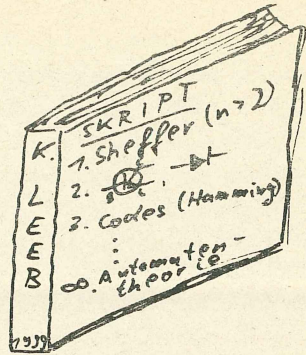 K.
L
E
E
B
1999
SKRIPT
1. Sheffer (n>2)
2.
3. Codes (Hamming)
⋮
∞. Automaten-
theorie